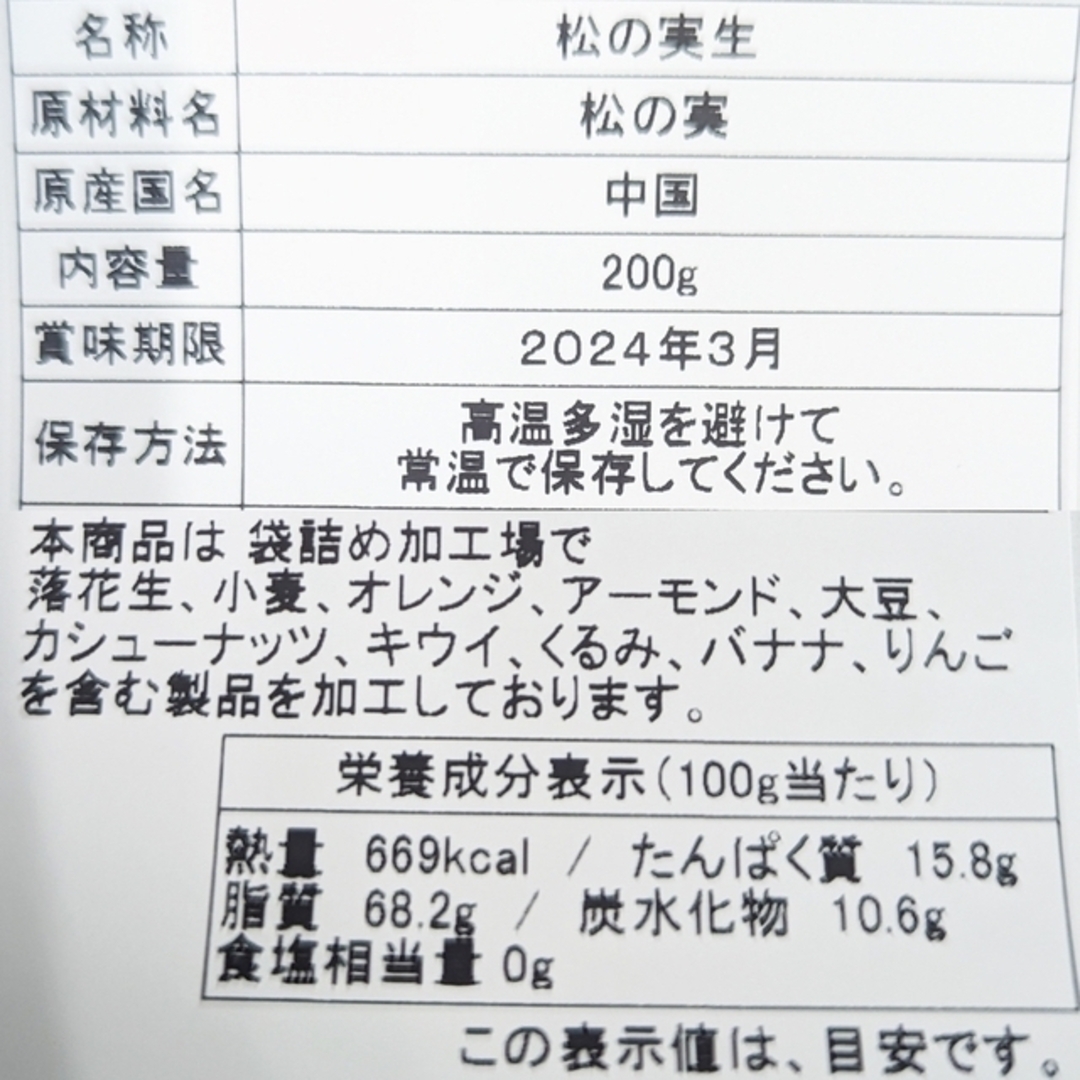 名称 松の実生
原材料名 松の実
原産国名 中国
内容量 200g
賞味期限 2024年3月
保存方法 高温多湿を避けて
常温で保存してください。
本商品は 袋詰め加工場で
落花生、小麦、オレンジ、アーモンド、大豆、
カシューナッツ、キウイ、くるみ、バナナ、りんご
を含む製品を加工しております。
栄養成分表示(100g当たり)
熱量 669kcal / たんぱく質 15.8g
脂質 68.2g / 炭水化物 10.6g
食塩相当量 0g
この表示値は、目安です。